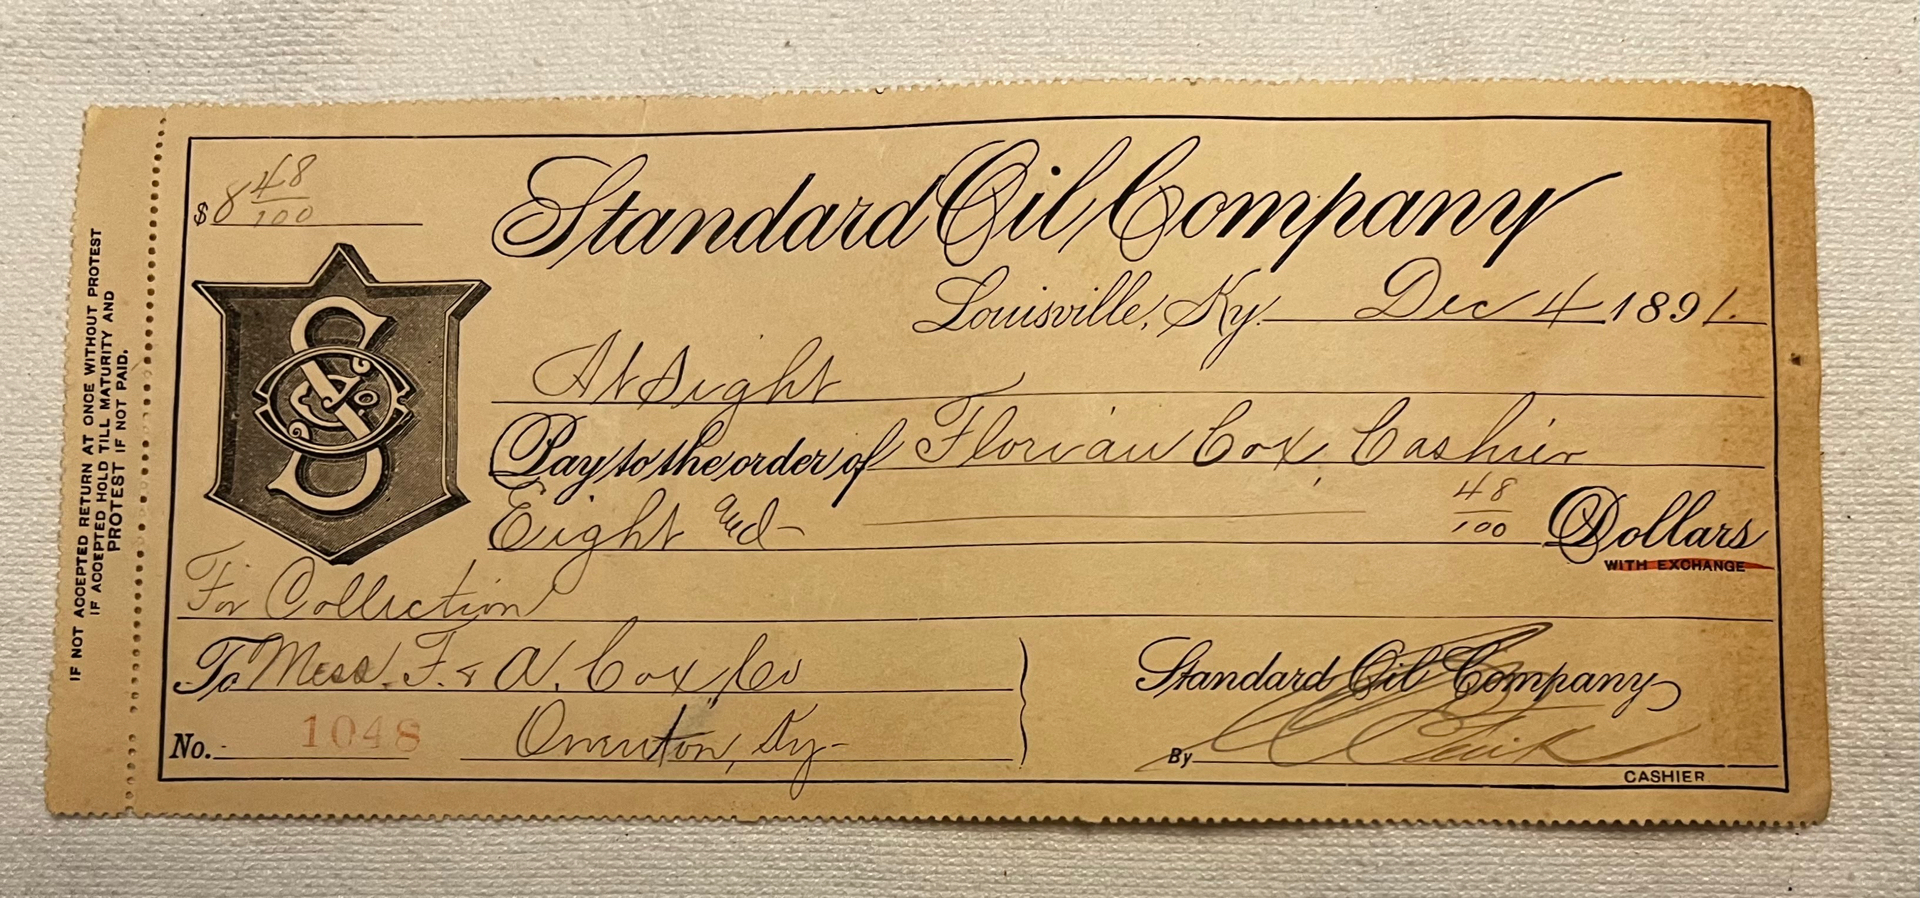 IF NOT ACCEPTED RETURN AT ONCE WITHOUT PROTEST
IF ACCEPTED HOLD TILL MATURITY AND
PROTEST IF NOT PAID.
$ 8 48/100
Standard Oil Company
Louisville, Ky. Dec 4 1891.
At Sight
Pay to the order of Florian Cox, Cashier
Eight and 48/100 Dollars
WITH EXCHANGE
For Collection
To Mess. F. & A. Cox, Co
Standard Oil Company
No. 1048 Owenton, Ky-
By
CASHIER